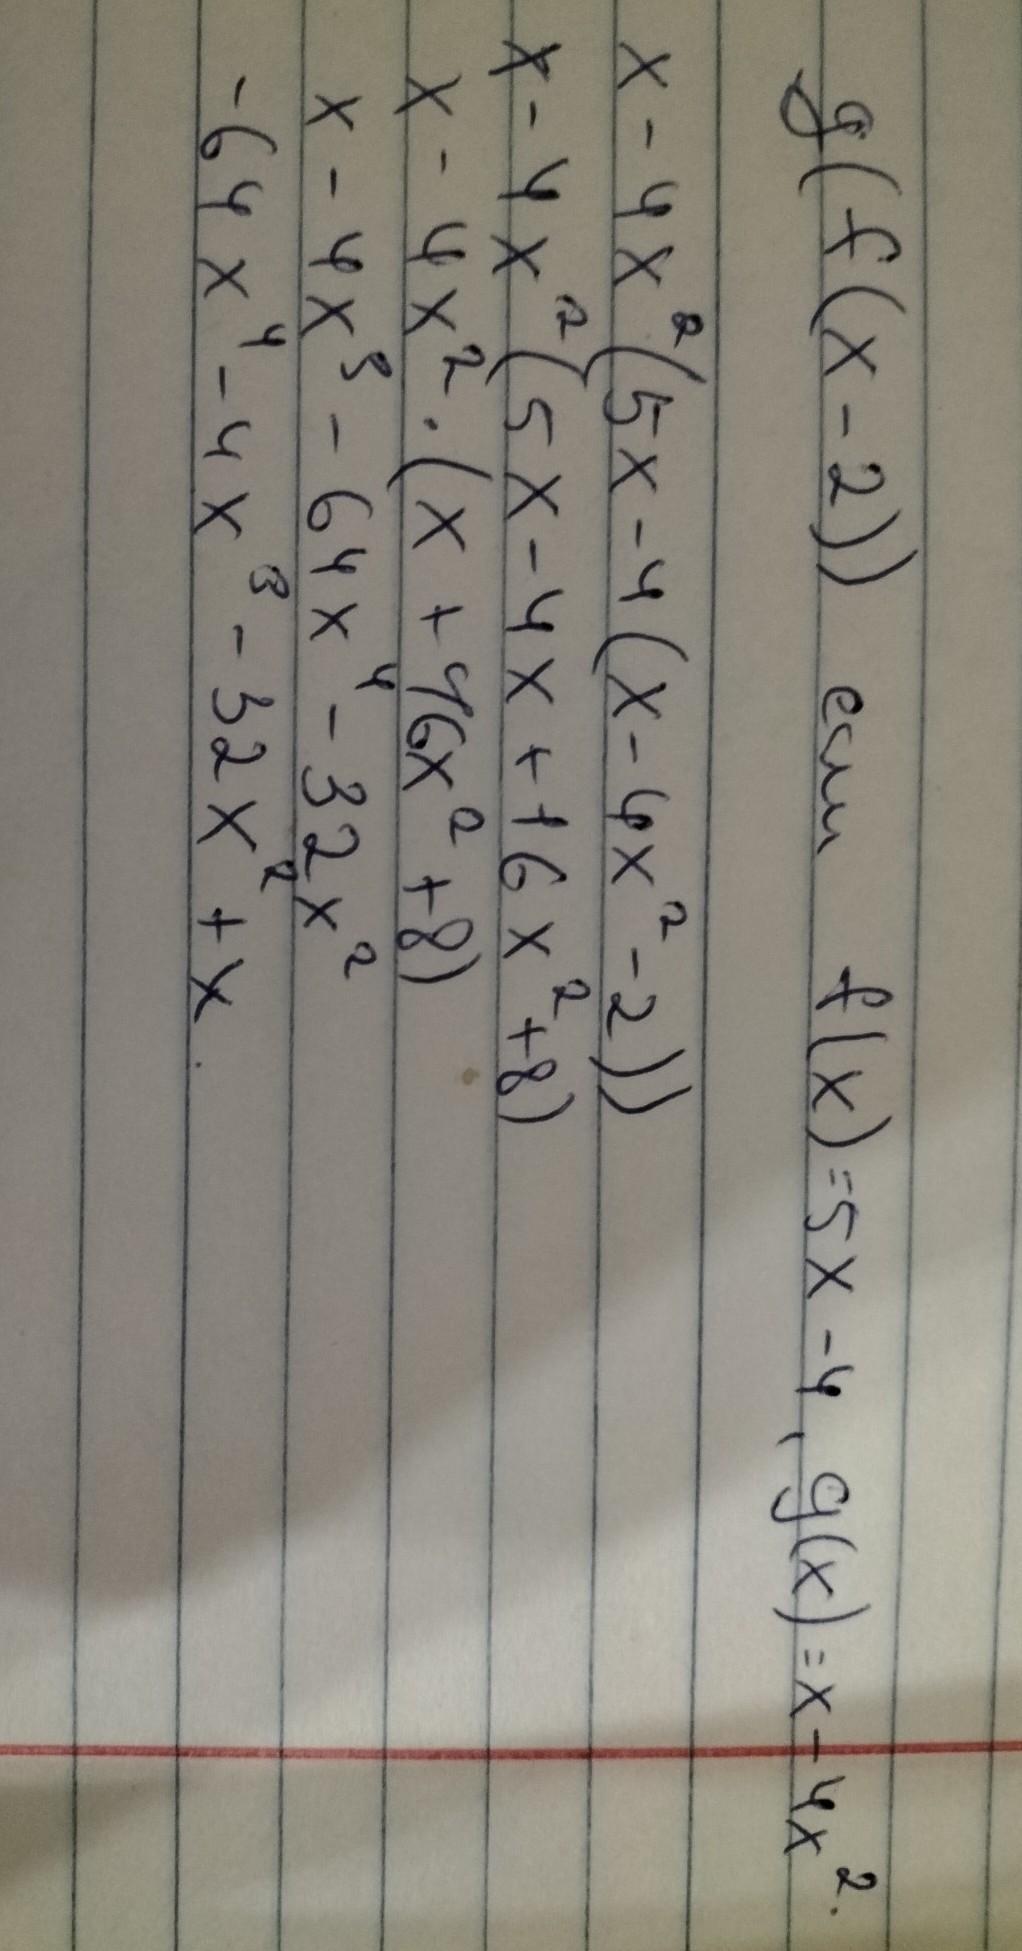 g(f(x-2)) если f(x)=5x-4, g(x)=x-4x².
x-4x²(5x-4(x-4x²-2))
x-4x²(5x-4x+16x²+8)
x-4x²·(x+16x²+8)
x-4x³-64x⁴-32x²
-64x⁴-4x³-32x²+x.